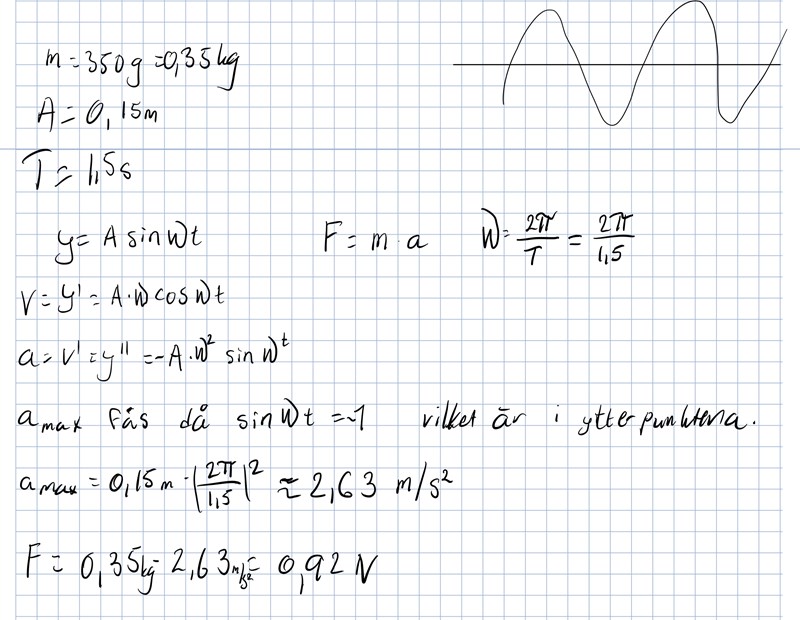 m = 350g = 0,35kg
A = 0,15m
T = 1,5s
y = A sin ωt F = m · a ω = 2π/T = 2π/1,5
v = y' = A·ω cos ωt
a = v' = y'' = -A·ω² sin ωt
a max fås då sin ωt = -1 vilket är i ytterpunkterna.
a max = 0,15m · (2π/1,5)² ≈ 2,63 m/s²
F = 0,35kg · 2,63 m/s² = 0,92 N